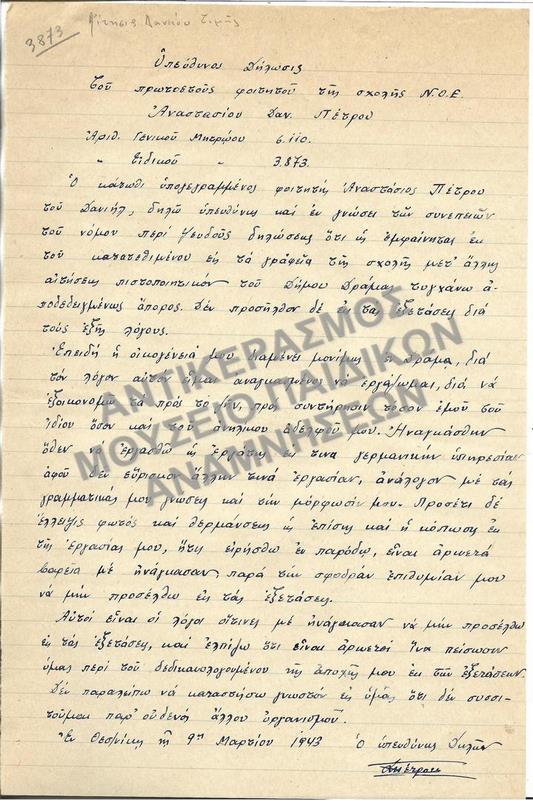 3873 Αίτησις Δανείου Τιμῆς
Ὑπεύθυνος Δήλωσις
Τοῦ πρωτοετοῦς φοιτητοῦ τῆς σχολῆς Ν.Ο.Ε.
Ἀναστασίου Δαν. Πέτρου
Ἀριθ. Γενικοῦ Μητρώου 6.110
" Εἰδικοῦ " 3.873
Ὁ κάτωθι ὑπογεγραμμένος φοιτητής Ἀναστάσιος Πέτρου
τοῦ Δανιήλ, δηλῶ ὑπευθύνως καί ἐν γνώσει τῶν συνεπειῶν
τοῦ νόμου περί ψευδοῦς δηλώσεως ὅτι ὡς ἐμφαίνηται ἐκ
τοῦ κατατεθιμένου εἰς τά γραφεῖα τῆς σχολῆς μετ' ἄλλης
αἰτήσεως πιστοποιητικόν τοῦ Δήμου Δράμας τυγχάνω ἀ-
ποδεδειγμένως ἄπορος. Δέν προσῆλθον δέ εἰς τάς ἐξετάσεις διά
τούς ἑξῆς λόγους.
Ἐπειδή ἡ οἰκογένειά μου διαμένει μονίμως Δράμα, διά
τόν λόγον αὐτόν εἶμαι ἀναγκασμένος νά ἐργάζωμαι, διά νά
ἐξοικονομῶ τά πρός τό ζῆν, πρός συντήρησιν τόσον ἐμοῦ τοῦ
ἰδίου ὅσον καί τοῦ ἀνηλίκου ἀδελφοῦ μου. Ἠναγκάσθην
ὅθεν νά ἐργασθῶ ὡς ἐργάτης εἰς τινα γερμανικήν ὑπηρεσίαν
ἀφοῦ δέν εὕρισκον ἄλλην τινά ἐργασίαν, ἀνάλογον μέ τάς
γραμματικάς μου γνώσεις καί τήν μόρφωσίν μου. Προσέτι δέ
ἔλλειψις φωτός καί θερμάνσεως ὡς ἐπίσης καί ἡ κόπωσις ἐκ
τῆς ἐργασίας μου, ἥτις εἰρήσθω ἐν παρόδῳ, εἶναι ἀρκετά
βαρεῖα μέ ἠνάγκασαν, παρά τήν σφοδράν ἐπιθυμίαν μου
νά μήν προσέλθω εἰς τάς ἐξετάσεις.
Αὐτοί εἶναι οἱ λόγοι οἵτινες μέ ἠνάγκασαν νά μήν προσέλθω
εἰς τάς ἐξετάσεις, καί ἐλπίζω ὅτι εἶναι ἀρκετοί ἵνα πείσωσιν
ὑμᾶς περί τοῦ δεδικαιολογουμένου τῆς ἀποχῆς μου ἐκ τῶν ἐξετάσεων.
Δέν παραλείπω νά καταστήσω γνωστόν εἰς ὑμᾶς ὅτι δέν συσσι-
τοῦμαι παρ' οὐδενός ἄλλου ὀργανισμοῦ.
Ἐν Θεσ/νίκῃ τῇ 9ῃ Μαρτίου 1943 Ὁ ὑπευθύνως δηλῶν
Πέτρου
ΑΝΤΙΚΕΡΑΣΜΟΣ
ΜΟΥΣΕΙΟ ΠΑΙΔΙΚΩΝ
ΑΝΑΜΝΗΣΕΩΝ